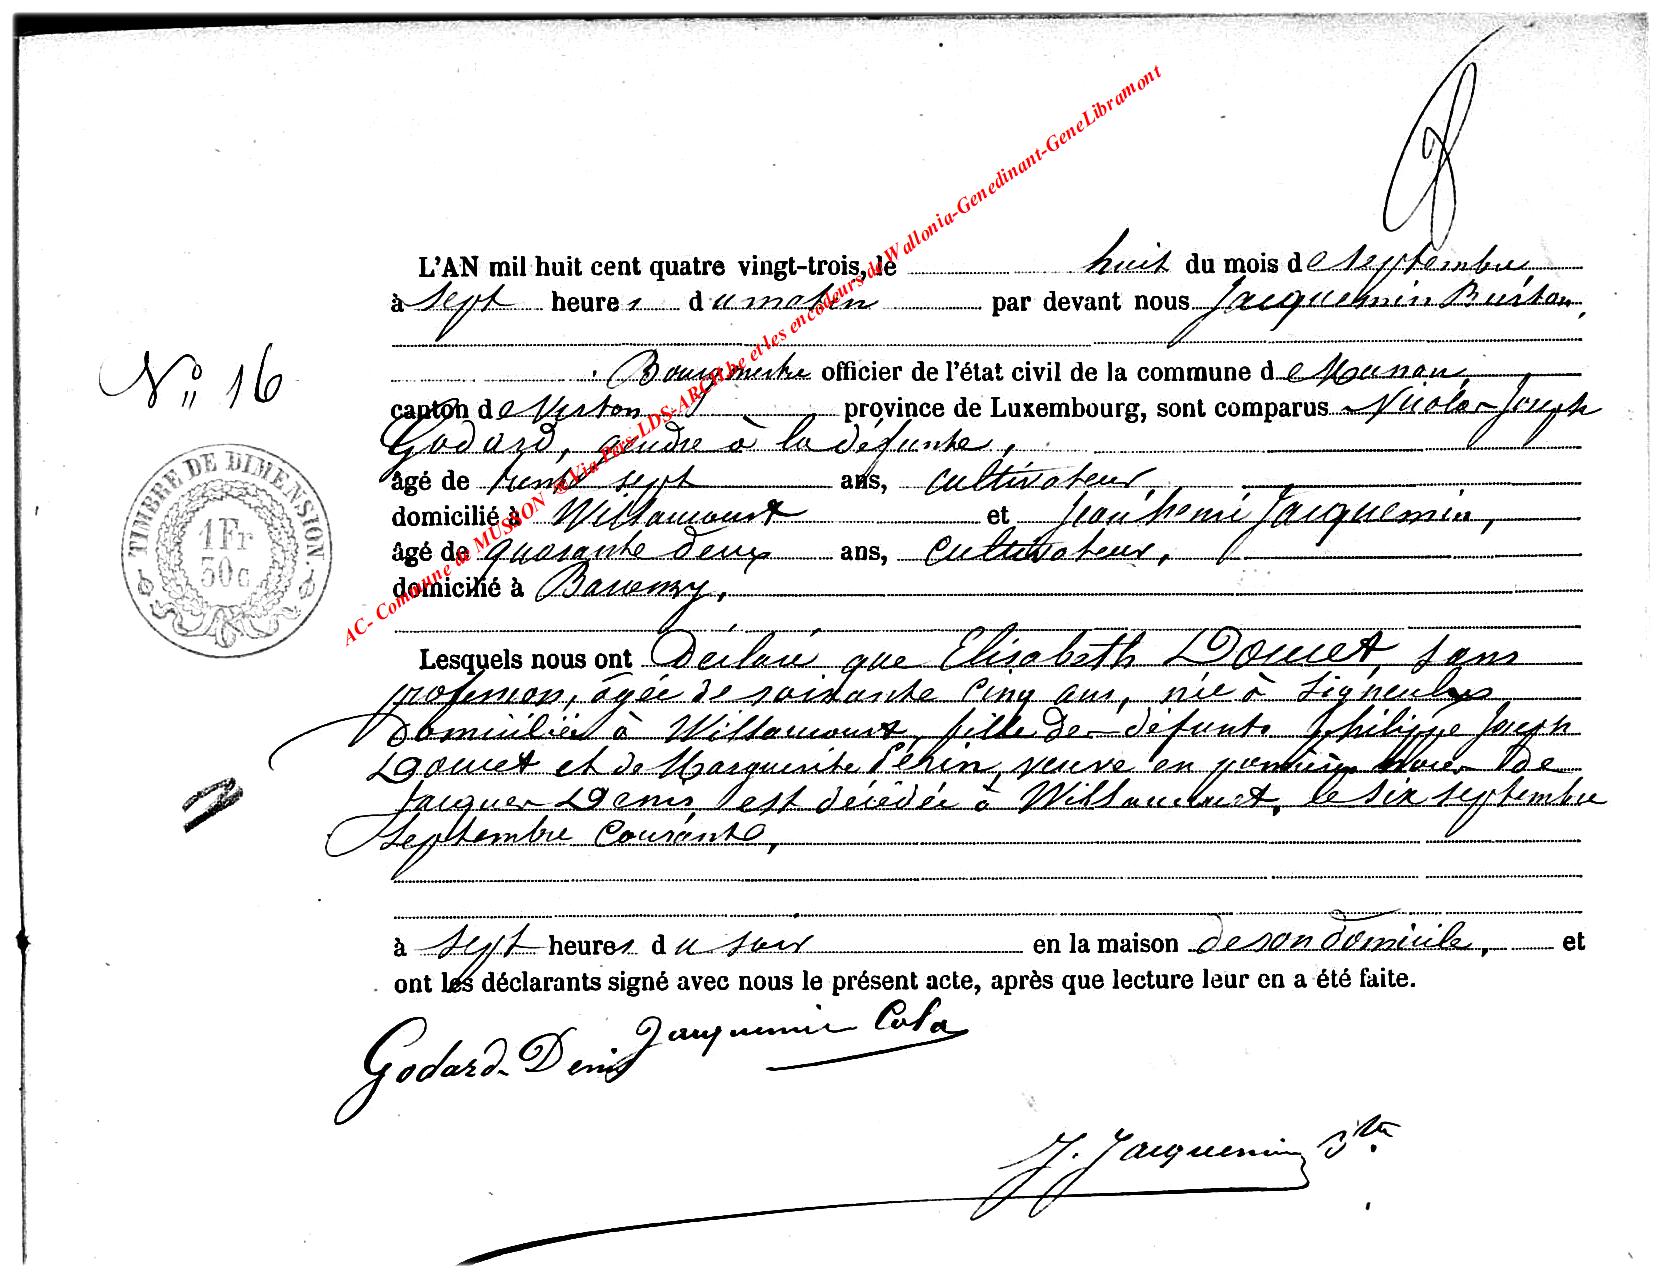 L'AN mil huit cent quatre vingt-trois, le huit du mois de septembre
à sept heures du matin par devant nous Jacquemin Buriton,
Bourgmestre officier de l'état civil de la commune de Musson,
N° 16
canton de Virton province de Luxembourg, sont comparus Nicolas Joseph
Godard, gendre à la défunte,
TIMBRE DE DIMENSION
1 Fr
50 c
âgé de trente sept ans, cultivateur,
domicilié à Willancourt et Jean henri Jacquemin,
âgé de quarante deux ans, cultivateur,
domicilié à Baranzy,
AC- Commune de MUSSON @Via Pers-LDS-ARCH.be et les encodeurs de Wallonia-Genedinant-GeneLibramont
Lesquels nous ont Déclaré que Elisabeth Doucet, sans
profession, âgée de soixante cinq ans, née à Signeulx
domiciliée à Willancourt, fille de défunts Philippe Joseph
Doucet et de Marguerite Périn, veuve en premières noces de
Jacques Denis, est décédée à Willancourt, le six septembre
septembre courante,
à sept heures du soir en la maison de son domicile, et
ont les déclarants signé avec nous le présent acte, après que lecture leur en a été faite.
Godard-Denis Jacquemin Cola
J. Jacquemin Btn.